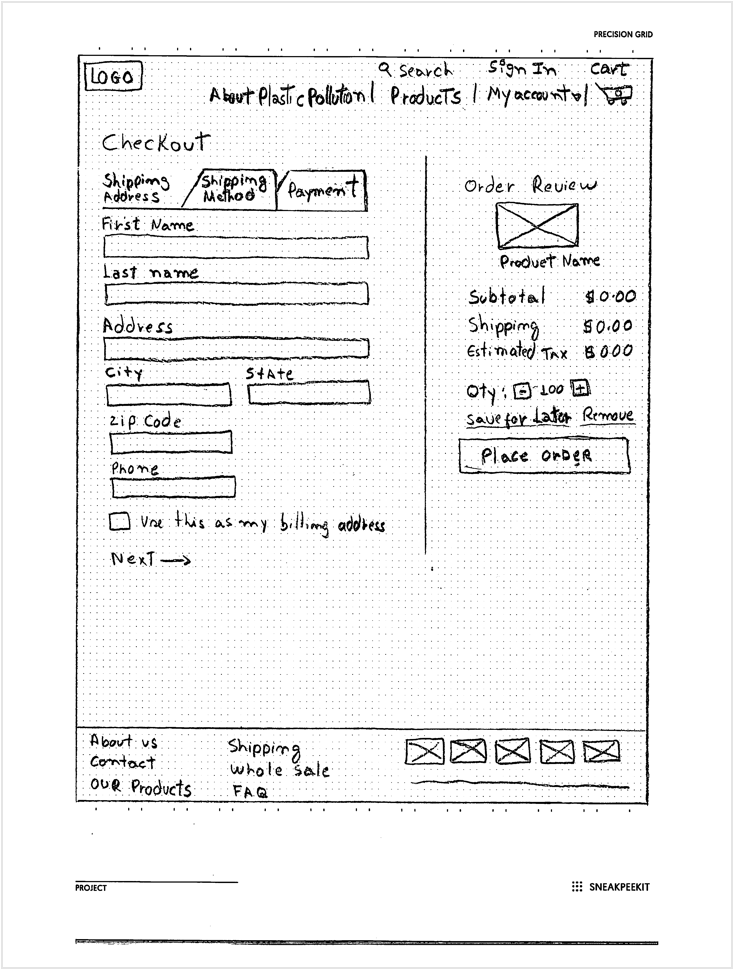 PRECISION GRID
LOGO
Search Sign In Cart
About Plastic Pollution | Products | My account |
Checkout
Shipping Address
Shipping Method
Payment
First Name
Last name
Address
City State
Zip Code
Phone
Use this as my billing address
Next →
Order Review
Product Name
Subtotal $0.00
Shipping $0.00
Estimated Tax $0.00
Qty: - 100 +
Save for Later Remove
Place ORDER
About us
Contact
OUR Products
Shipping
Whole sale
FAQ
PROJECT
SNEAKPEEKIT